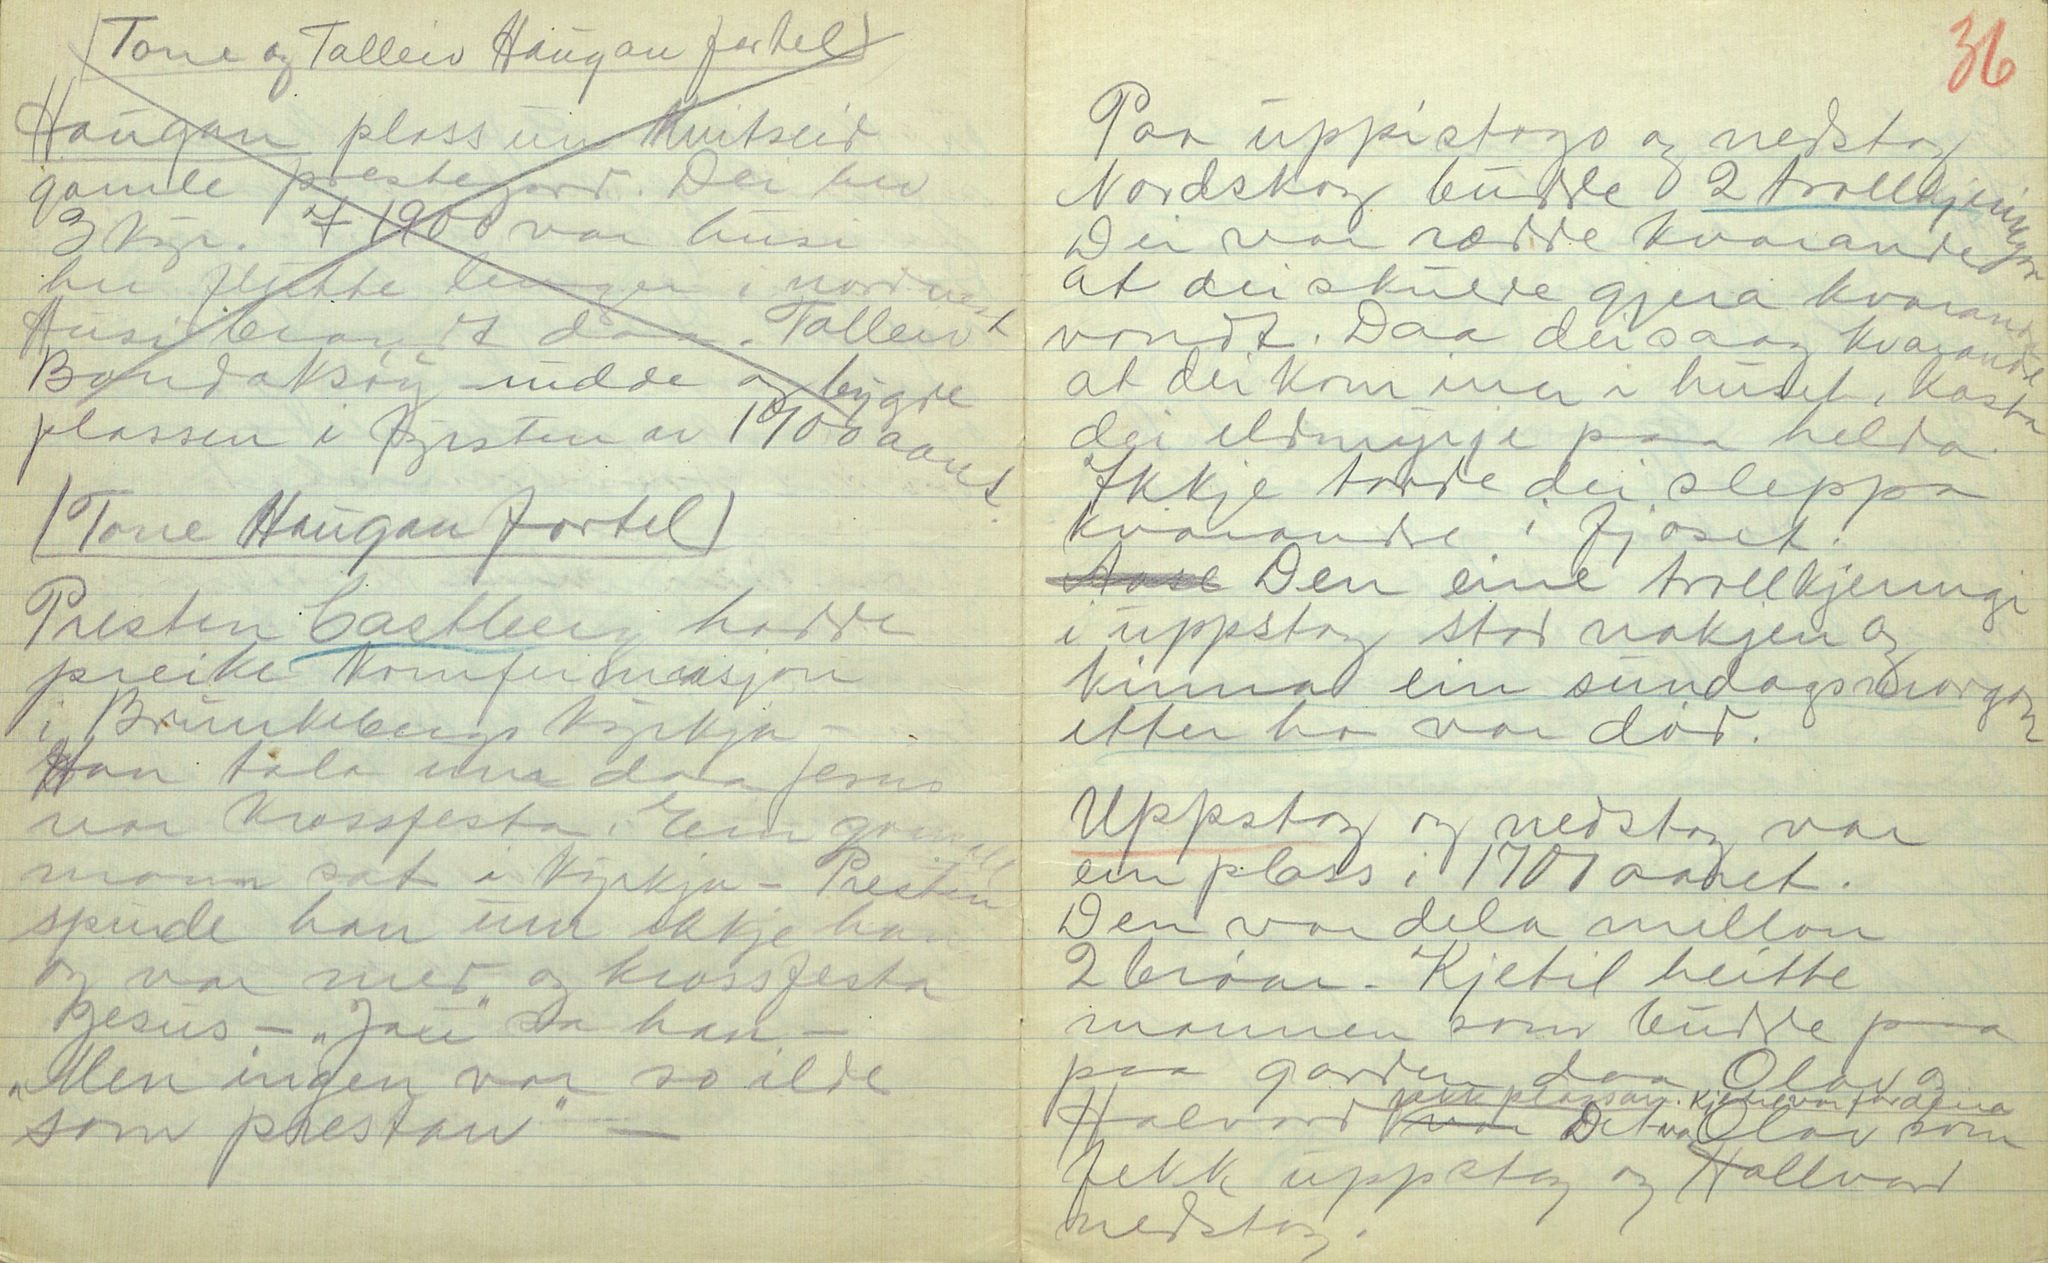 (Tone og Talleiv Haugan fortel)
Haugan plass un Kvitseid
gamle prestegard. Dei hev
3 kyr. I 1900 var husi
her flytte lenger i nordvest
Husi brandt daa. Talleiv
Bondaksøy rudde og bygde
plassen i fyrsten av 1900 aaret.
(Tone Haugan fortel)
Presten Castberg hadde
preike konfirmasjon
i Brunkebergs kyrkja -
Han tala um daa Jesus
var krossfesta. Ein gamall
mann sat i kyrkja - Presten
spurde han um ikkje han
og var med og krossfesta
Jesus - "Jau" sa han -
"Men ingen var so ilde
som prestan" -
36
Paa uppistogo og nedstog
Nordskog budde 2 trollkjeringar
Dei var rædde kvarandre
at dei skulde gjera kvarandre
vondt. Daa dei saag kvarandre
at dei kom inn i huset, kasta
dei eldmyrje paa helda.
Ikkje torde dei sleppa
kvarandre i fjøset.
Den eine trollkjeringi
i uppstog stod nakjen og
kinna ein sundagsmorgon
etter ho var død.
Uppstog og nedstog var
ein plass i 1700 aaret.
Den var dela millom
2 brør. - Kjetil heitte
mannen som budde paa
paa garden daa Olav og
Halvard fekk plassan. Kjetil var far deira
var Det var Olav som
fekk uppstog og Hallvard
nedstog.